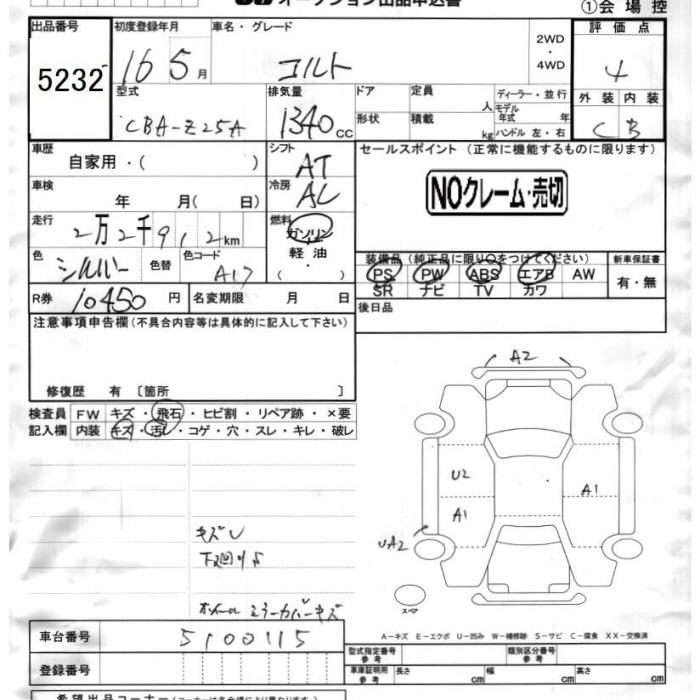 オークション出品申込書
①会場控
出品番号 初度登録年月 車名・グレード 2WD・4WD 評価点
5232 16 5月 コルト 4
型式 排気量 ドア 定員 人 ディーラー・並行 外装 内装
CBA-Z25A 1340cc 形状 積載 kg モデル年式 年 ハンドル 左・右 C B
車歴 シフト セールスポイント (正常に機能するものに限ります)
自家用・( ) AT
車検 冷房 NOクレーム・売切
年 月( 日) AC
走行 2万2千912km 燃料
ガソリン
色 シルバー 色替 色コード A17 軽油・( )
装備品(純正品に限り○をつけてください) 新車保証書
PS PW ABS エアB AW 有・無
SR ナビ TV カワ
R券 10450円 名変期限 月 日 後日品
注意事項申告欄(不具合内容等は具体的に記入して下さい)
修復歴 有〔箇所 〕
検査員 FW キズ・飛石・ヒビ割・リペア跡・×要
記入欄 内装 キズ・汚レ・コゲ・穴・スレ・キレ・破レ
A2
U2
A1
A1
UA2
キズU
下廻りS
ホイール ミラーカバーキズ
スペア
A-キズ E-エクボ U-凹み W-補修跡 S-サビ C-腐食 XX-交換済
車台番号 5100115
型式指定番号 参考 類別区分番号 参考
登録番号 車庫証明用 参考 長さ cm 幅 cm 高さ cm
希望出品コーナー